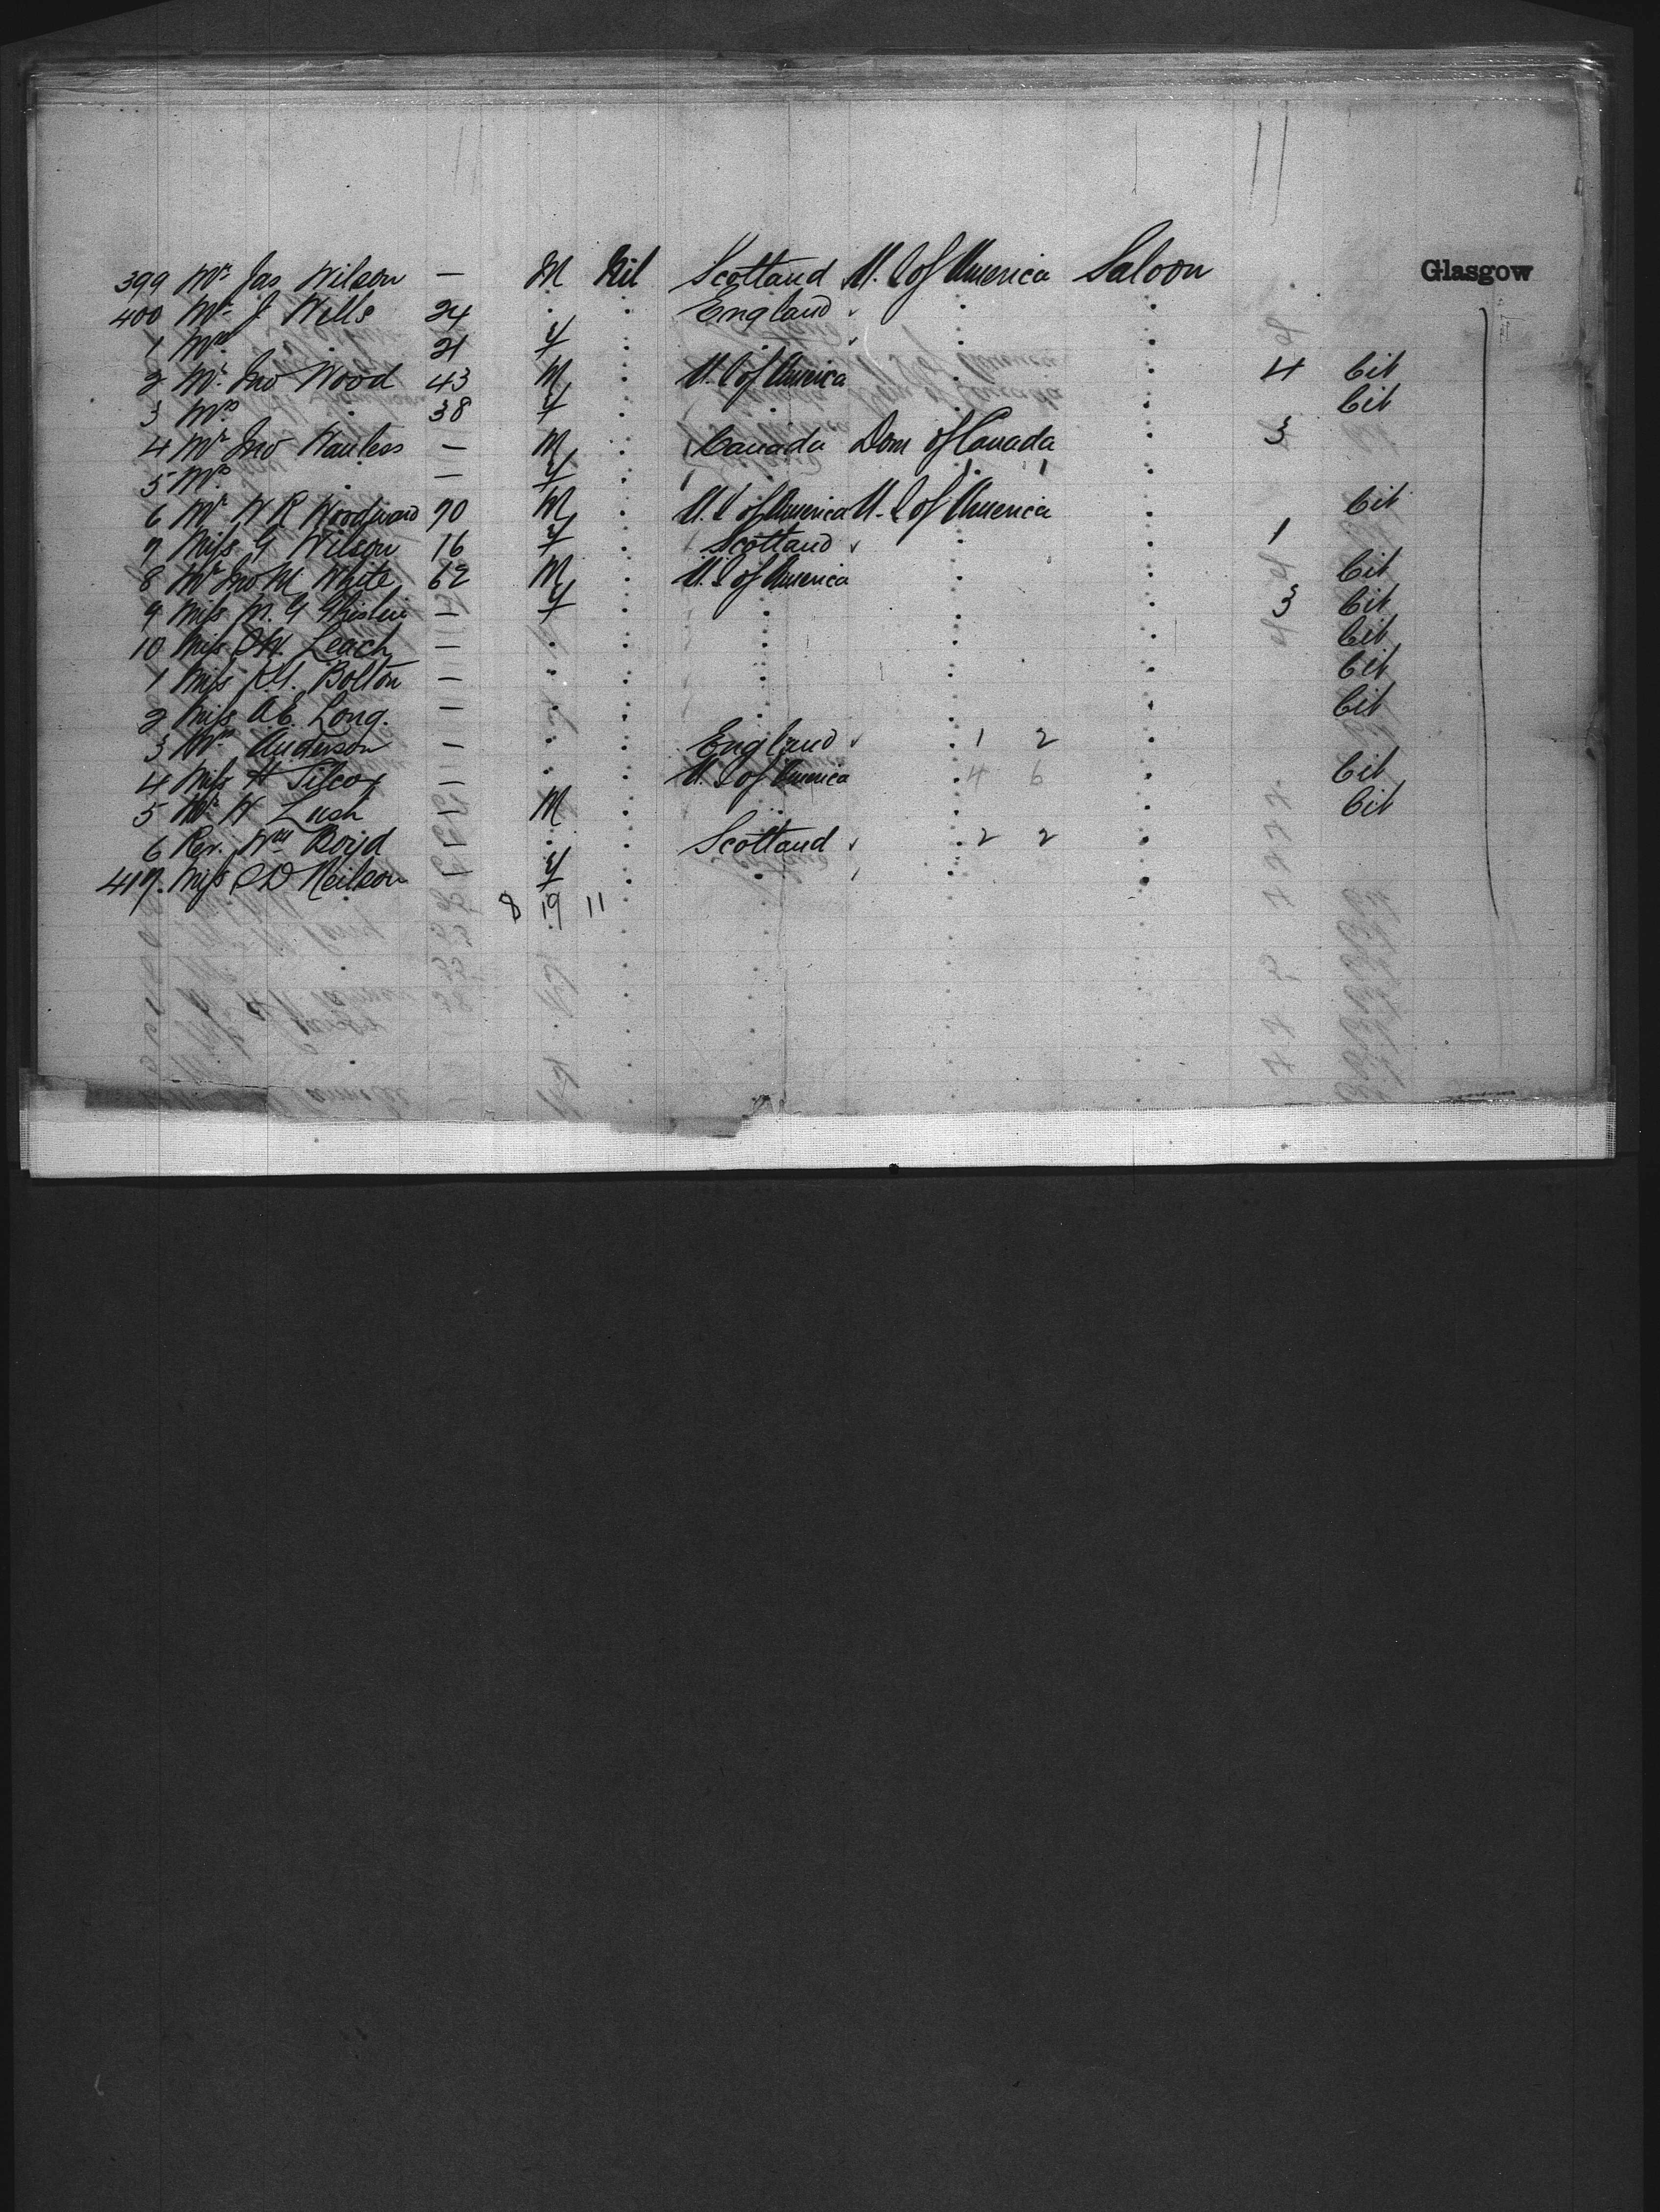 11
399 Mr. Jas Wilson — M Nil Scotland U. S of America Saloon Glasgow
400 Mr. J Wills 24 . . England
1 Mrs . 21 F
2 Mr. Jno Wood 43 M U. S of America 4 Cit
3 Mrs . 38 F Cit
4 Mr Jno Wanless — M Canada Dom of Canada 3
5 Mrs . — F
6 Mr W R Woodward 70 M U. S of America U. S of America Cit
7 Miss G Wilson 16 F Scotland 1
8 Mr Jno M White 62 M U. S of America Cit
9 Miss M. G — F 3 Cit
10 Miss Leach — Cit
1 Miss Bolton — Cit
2 Miss A. E. Long. — Cit
3 Mrs Anderson — England 1 2
4 Miss H Silcox — U. S of America 4 6 Cit
5 Mr H Lush — M Cit
6 Rev. Wm Boyd — Scotland 2 2
417. Miss D Neilson — F
8 19 11